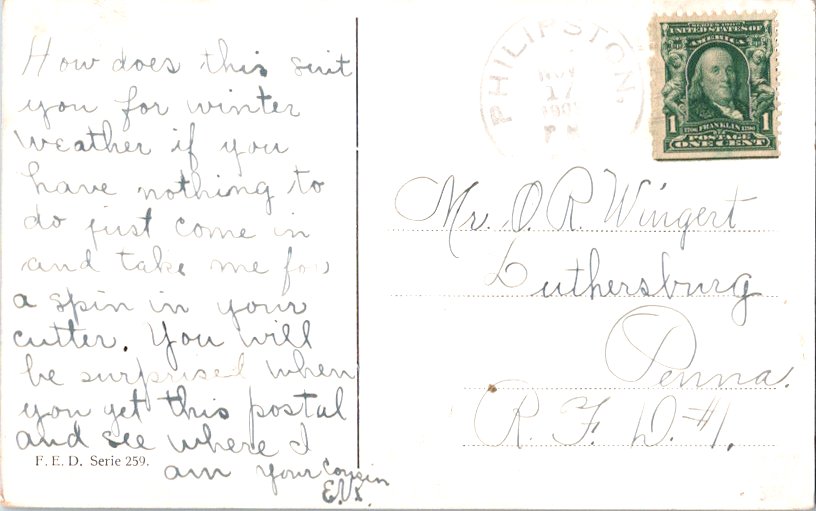 How does this suit
you for winter
weather if you
have nothing to
do just come in
and take me for
a spin in your
cutter. You will
be surprised when
you get this postal
and see where I
am your cousin
F. E. D. Serie 259.
PHILIPSTON,
NOV
17
SERIES 1902
UNITED STATES OF
AMERICA
1 1706 FRANKLIN 1790 1
POSTAGE
ONE CENT
Mr. O. R. Wingert
Luthersburg
Penna.
R. F. D. #1.